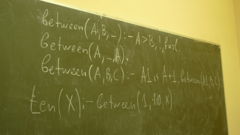 between(A,B,_):- A>B,!,fail.
between(A,_,A).
between(A,B,C):- A1 is A+1, between(A1,B,C).
ten(X):- between(1,10,X)